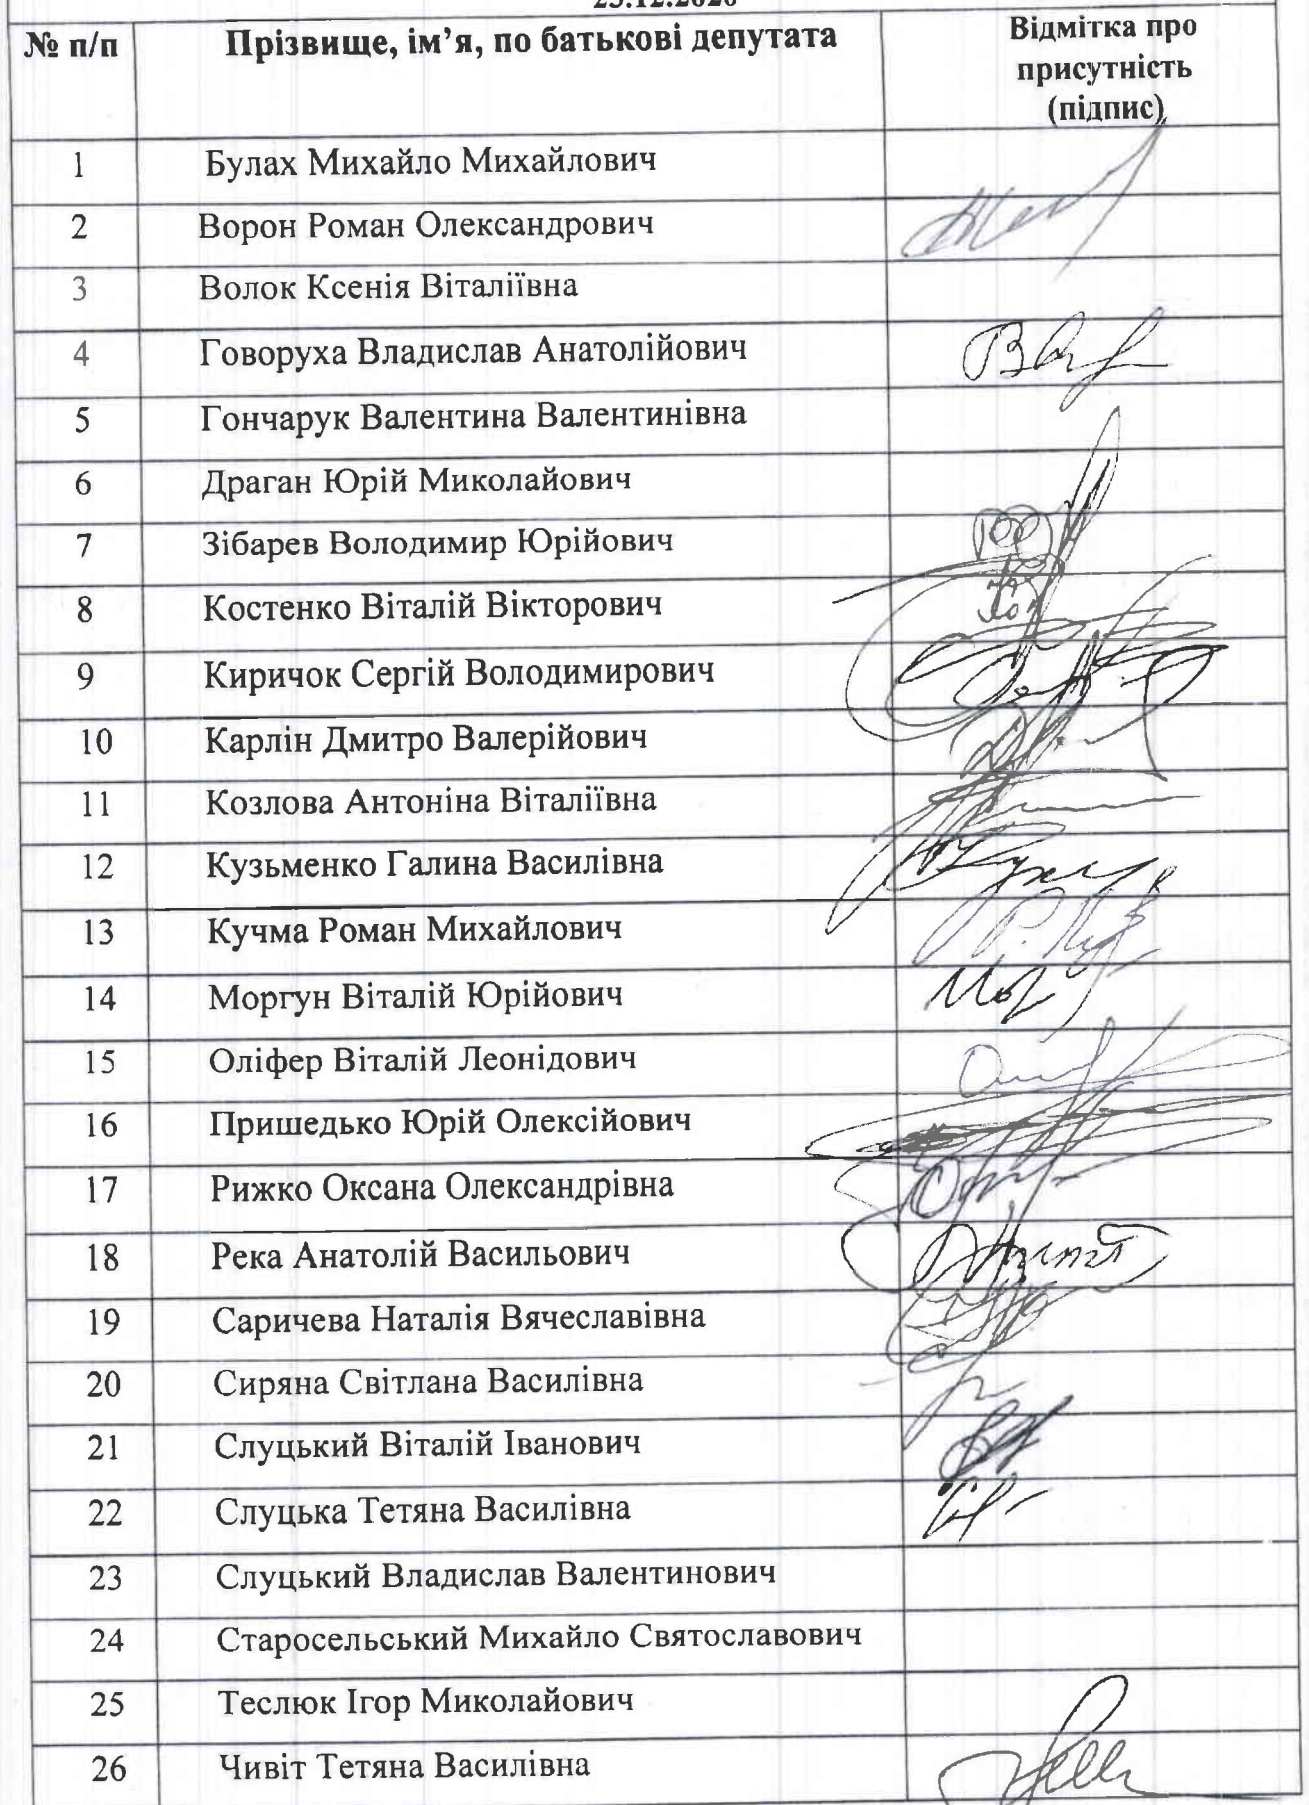 23.12.2020
№ п/п
Прізвище, ім’я, по батькові депутата
Відмітка про
присутність
(підпис)
1 Булах Михайло Михайлович
2 Ворон Роман Олександрович
3 Волок Ксенія Віталіївна
4 Говоруха Владислав Анатолійович
5 Гончарук Валентина Валентинівна
6 Драган Юрій Миколайович
7 Зібарев Володимир Юрійович
8 Костенко Віталій Вікторович
9 Киричок Сергій Володимирович
10 Карлін Дмитро Валерійович
11 Козлова Антоніна Віталіївна
12 Кузьменко Галина Василівна
13 Кучма Роман Михайлович
14 Моргун Віталій Юрійович
15 Оліфер Віталій Леонідович
16 Пришедько Юрій Олексійович
17 Рижко Оксана Олександрівна
18 Река Анатолій Васильович
19 Саричева Наталія Вячеславівна
20 Сиряна Світлана Василівна
21 Слуцький Віталій Іванович
22 Слуцька Тетяна Василівна
23 Слуцький Владислав Валентинович
24 Старосельський Михайло Святославович
25 Теслюк Ігор Миколайович
26 Чивіт Тетяна Василівна